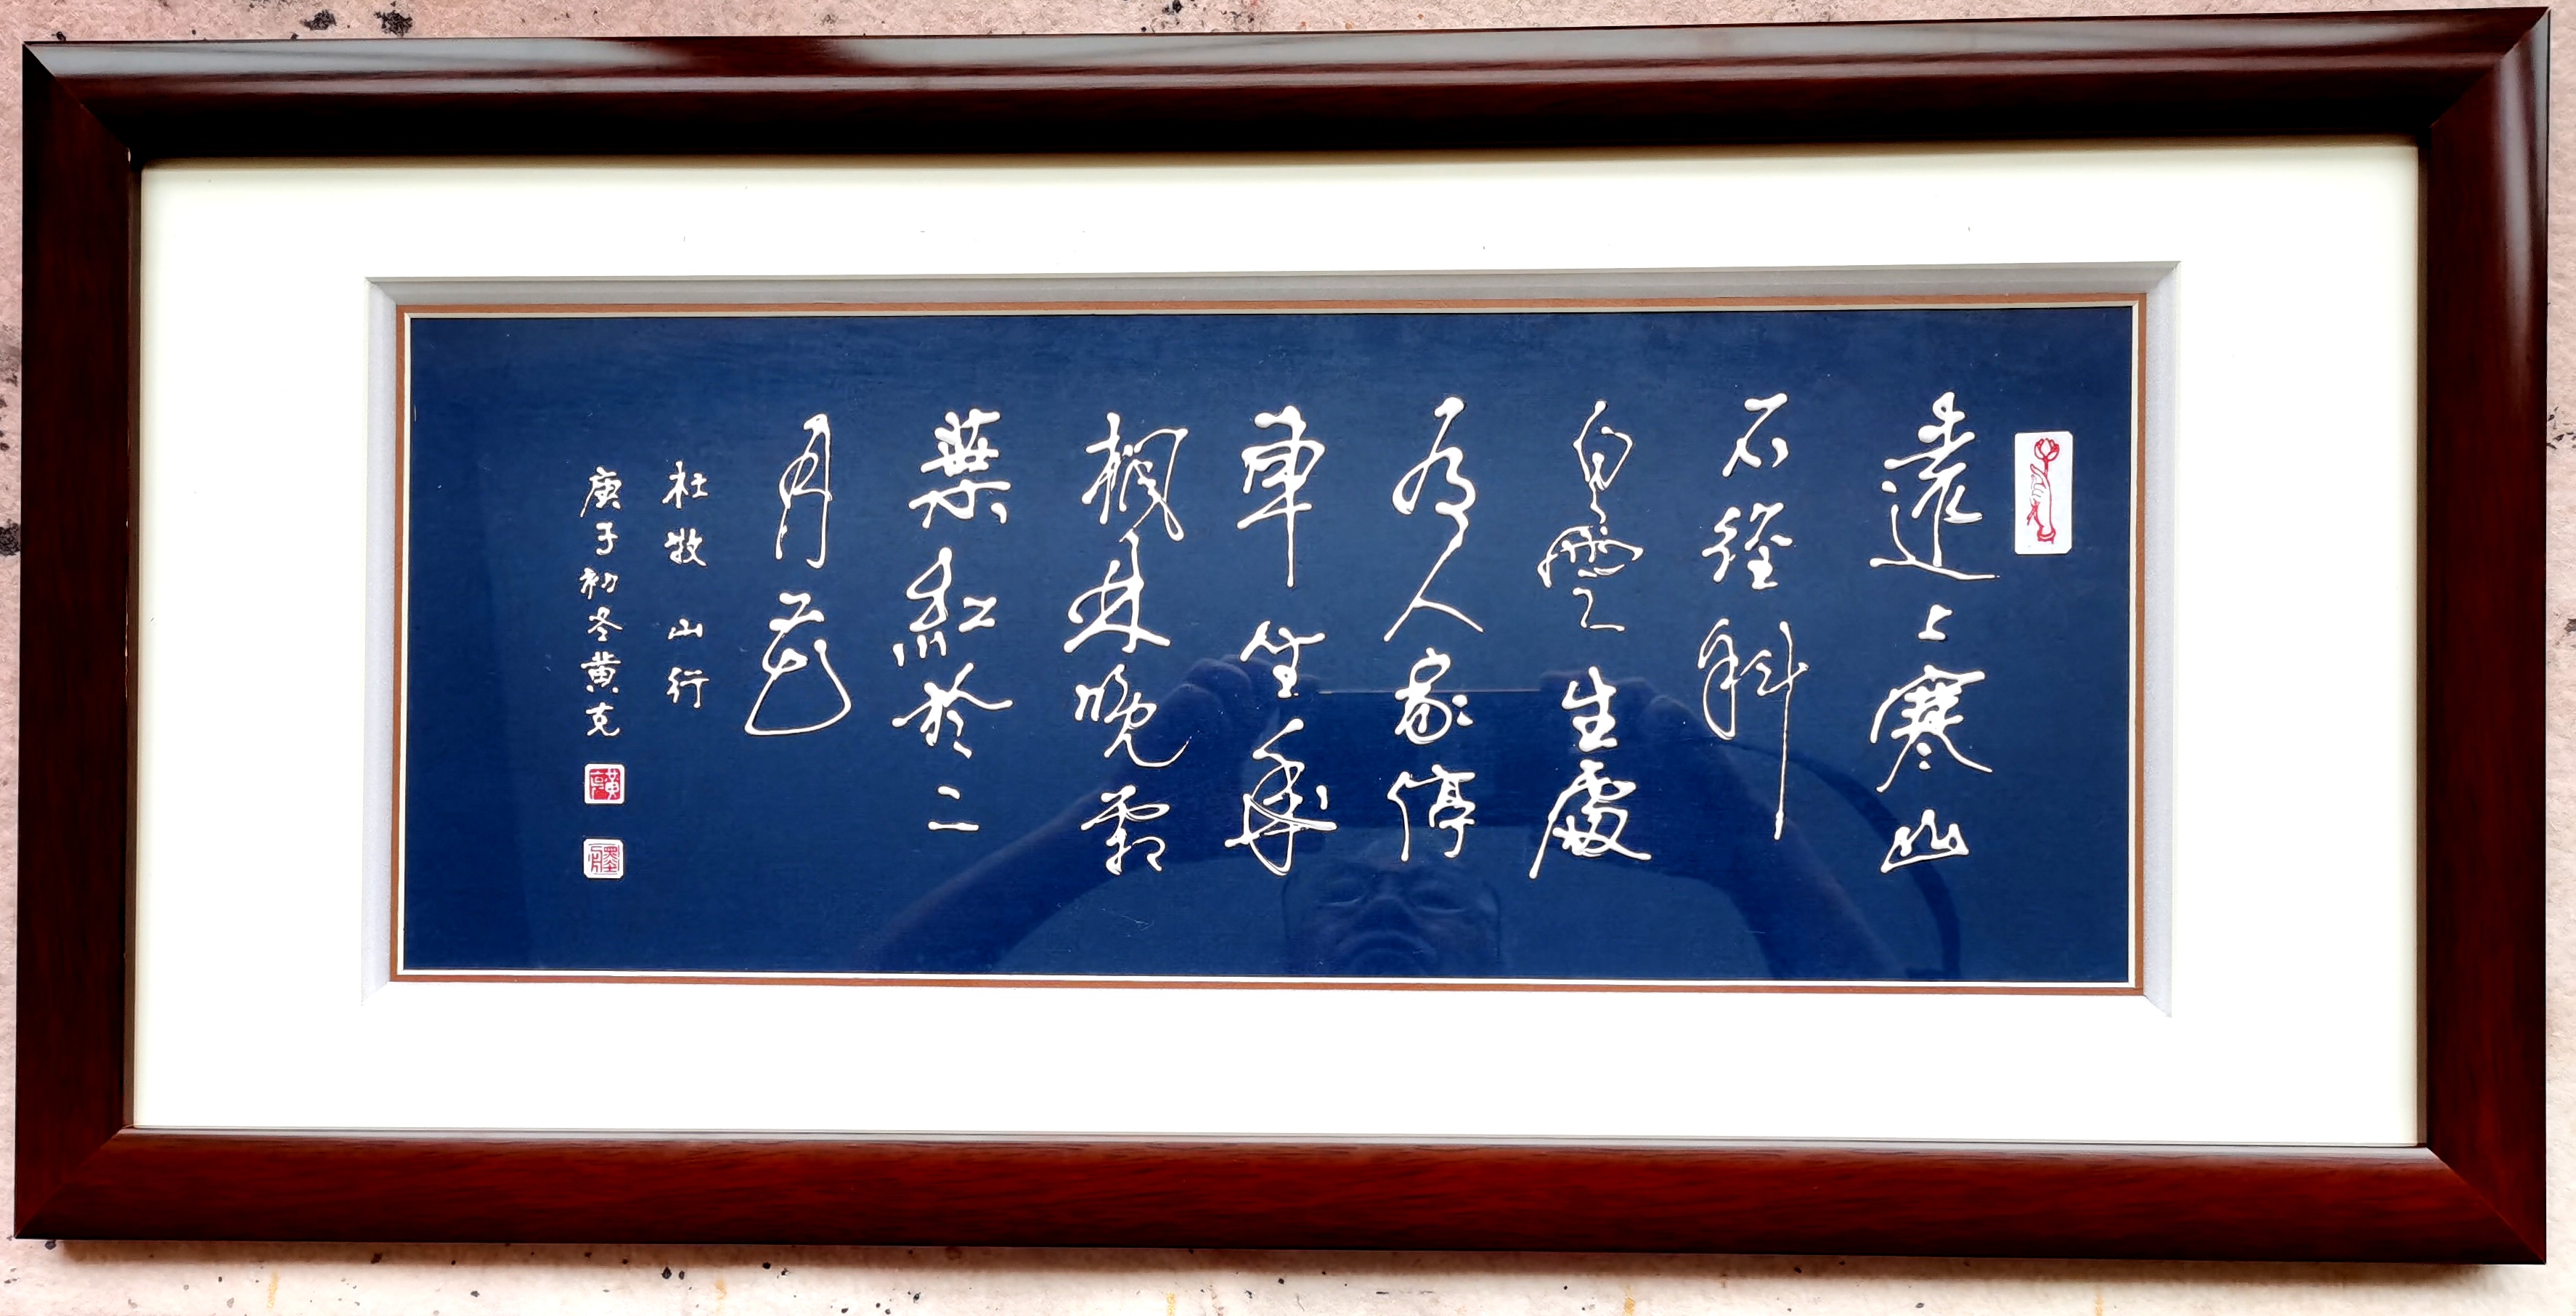 遠上寒山
石徑斜
白雲生處
有人家停
車坐愛
楓林晚霜
葉紅於二
月花
杜牧 山行
庚子初冬黄克
黄克